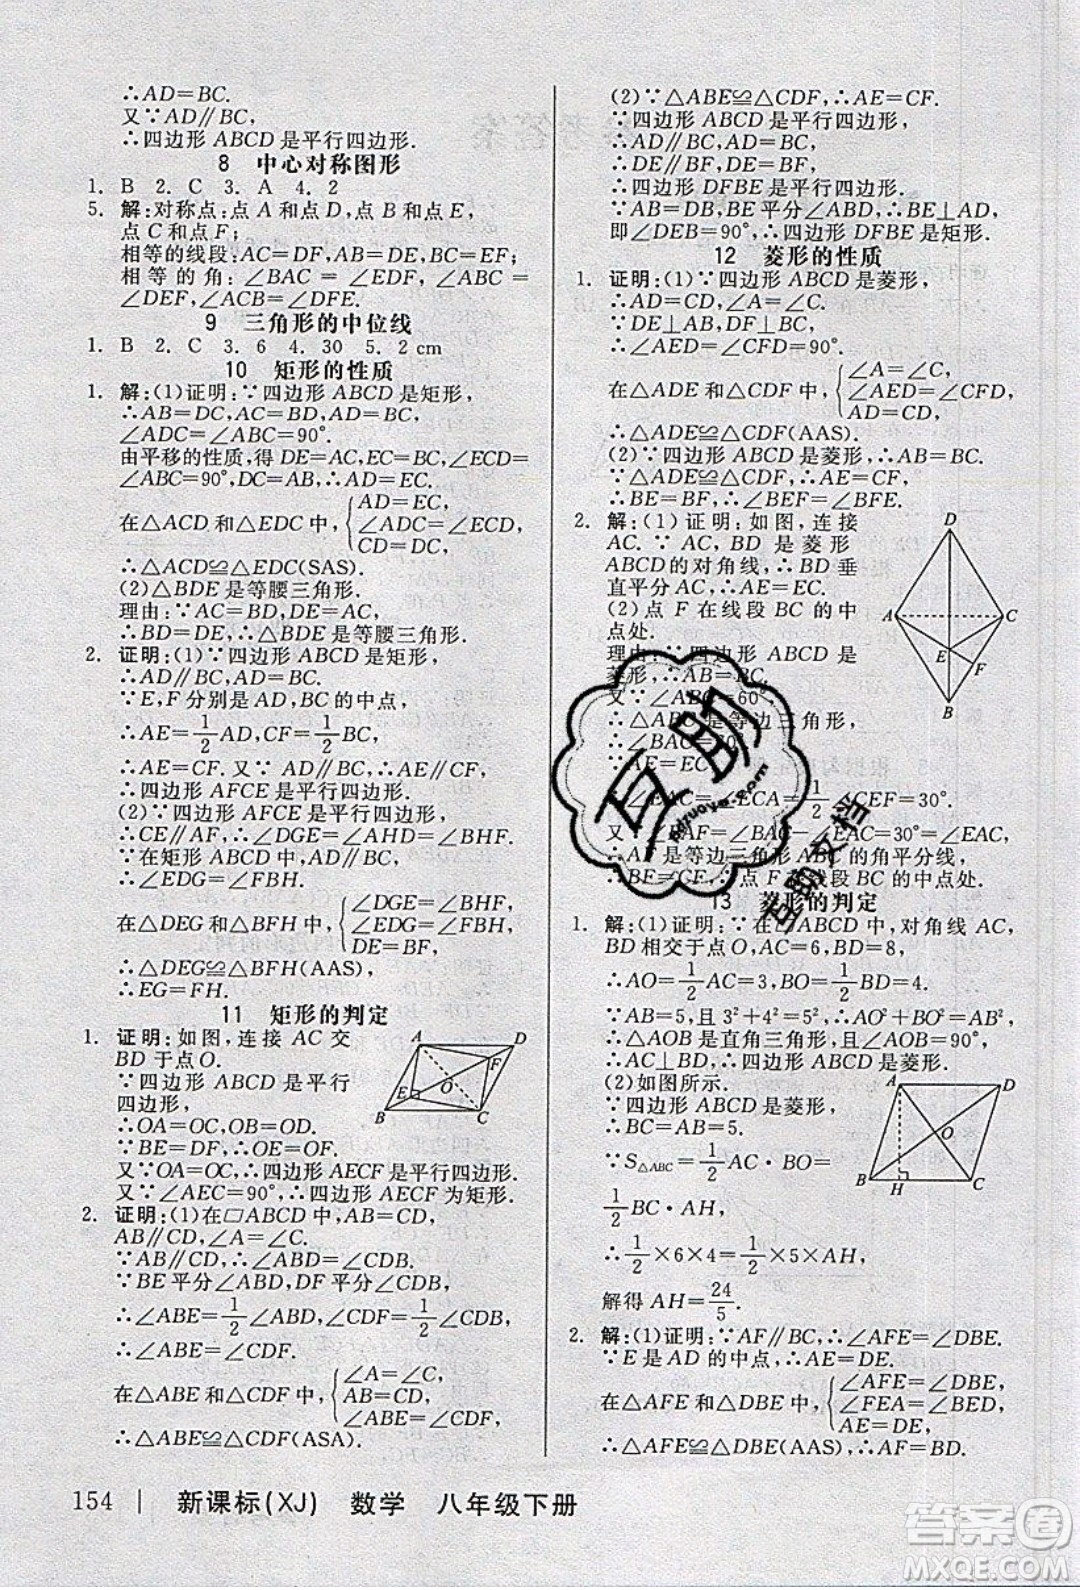 ∴AD=BC.
又∵AD∥BC,
∴四边形 ABCD 是平行四边形.
8 中心对称图形
1. B 2. C 3. A 4. 2
5. 解:对称点:点 A 和点 D,点 B 和点 E,
点 C 和点 F;
相等的线段:AC=DF,AB=DE,BC=EF;
相等的角:∠BAC=∠EDF,∠ABC=
∠DEF,∠ACB=∠DFE.
9 三角形的中位线
1. B 2. C 3. 6 4. 30 5. 2 cm
10 矩形的性质
1. 解:(1)证明:∵四边形 ABCD 是矩形,
∴AB=DC,AC=BD,AD=BC,
∠ADC=∠ABC=90°.
由平移的性质,得 DE=AC,CE=BC,∠ECD=
∠ABC=90°,DC=AB,∴AD=EC.
在△ACD 和△EDC 中,{AD=EC,
∠ADC=∠ECD,
CD=DC,
∴△ACD≌△EDC(SAS).
(2)△BDE 是等腰三角形.
理由:∵AC=BD,DE=AC,
∴BD=DE,∴△BDE 是等腰三角形.
2. 证明:(1)∵四边形 ABCD 是矩形,
∴AD∥BC,AD=BC.
∵E,F 分别是 AD,BC 的中点,
∴AE=1/2AD,CF=1/2BC,
∴AE=CF. 又∵AE∥CF,
∴四边形 AFCE 是平行四边形.
(2)∵四边形 AFCE 是平行四边形,
∴CE∥AF,∴∠DGE=∠AHD=∠BHF.
∵在矩形 ABCD 中,AD∥BC,
∴∠EDG=∠FBH.
在△DEG 和△BFH 中,{∠DGE=∠BHF,
∠EDG=∠FBH,
DE=BF,
∴△DEG≌△BFH(AAS),
∴EG=FH.
11 矩形的判定
1. 证明:如图,连接 AC 交
BD 于点O.
∵四边形 ABCD 是平行
四边形,
∴OA=OC,OB=OD.
∵BE=DF,∴OE=OF.
又∵OA=OC,∴四边形 AECF 是平行四边形.
又∵∠AEC=90°,∴四边形 AECF 为矩形.
A D F E O B C
2. 证明:(1)在▱ABCD 中,AB=CD,
AB∥CD,∴∠A=∠C.
∵AB∥CD,∴∠ABD=∠CDB.
∵BE 平分∠ABD,DF 平分∠CDB,
∴∠ABE=1/2∠ABD,∠CDF=1/2∠CDB,
∴∠ABE=∠CDF.
在△ABE 和△CDF 中,{∠A=∠C,
AB=CD,
∠ABE=∠CDF,
∴△ABE≌△CDF(ASA).
(2)∵△ABE≌△CDF,∴AE=CF.
∵四边形 ABCD 是平行四边形,
∴AD∥BC,AD=BC,
∴DE∥BF,DE=BF,
∴四边形 DFBE 是平行四边形.
∵AB=DB,BE 平分∠ABD,∴BE⊥AD,
即∠DEB=90°,∴四边形 DFBE 是矩形.
12 菱形的性质
1. 证明:(1)∵四边形 ABCD 是菱形,
∴AD=CD,∠A=∠C.
∵DE⊥AB,DF⊥BC,
∴∠AED=∠CFD=90°.
在△ADE 和△CDF 中,{∠A=∠C,
∠AED=∠CFD,
AD=CD,
∴△ADE≌△CDF(AAS).
(2)∵四边形 ABCD 是菱形,
∴AB=CB. ∵△ADE≌△CDF,∴AE=CF,
∴BE=BF,∴∠BEF=∠BFE.
2. 解:(1)证明:如图,连接
AC. ∵AC,BD 是菱形
ABCD 的对角线,∴BD 垂
直平分 AC,∴AE=EC.
(2)点 F 在线段 BC 的中
点处.
理由:∵四边形 ABCD 是
菱形,∴AB=CB.
又∵∠ABC=60°,
∴△ABC 是等边三角形,
∴∠BAC=60°.
∵AE=EC,
∠ECA=1/2∠CEF=30°.
又∵∠EAF=∠BAC-∠EAC=30°=∠EAC,
∴AF 是等边三角形 ABC 的角平分线,
∴BF=CF,∴点 F 在线段 BC 的中点处.
D A C E F B
13 菱形的判定
1. 解:(1)证明:∵在▱ABCD 中,对角线 AC,
BD 相交于点 O,AC=6,BD=8,
∴AO=1/2AC=3,BO=1/2BD=4.
∵AB=5,且 3²+4²=5²,∴AO²+BO²=AB²,
∴△AOB 是直角三角形,且∠AOB=90°,
∴AC⊥BD,∴四边形 ABCD 是菱形.
(2)如图所示.
∵四边形 ABCD 是菱形,
∴BC=AB=5.
∵S△ABC=1/2AC·BO=
1/2BC·AH,
∴1/2×6×4=1/2×5×AH,
解得 AH=24/5.
A D O B H C
2. 解:(1)证明:∵AF∥BC,∴∠AFE=∠DBE.
∵E 是 AD 的中点,∴AE=DE.
在△AFE 和△DBE 中,{∠AFE=∠DBE,
∠FEA=∠BED,
AE=DE,
∴△AFE≌△DBE(AAS),∴AF=DB.
154 | 新课标(XJ) 数学 八年级下册
互助
hdzuoye.com
互助文档
答案圈
MXQE.COM